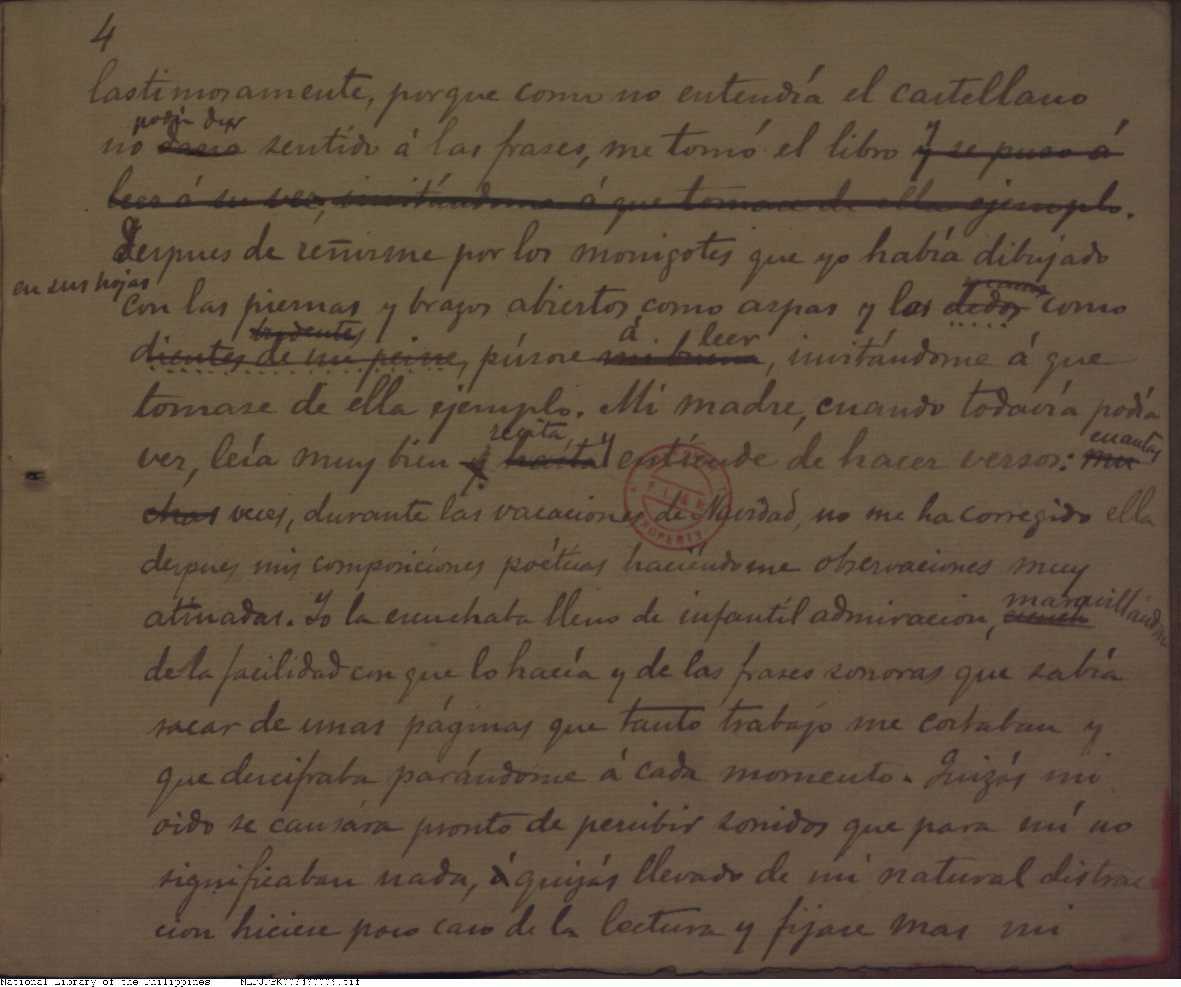 4
lastimoramente, porque como no entendía el castellano
podía dar
no daba sentido á las frases, me tomó el libro y se puso á
leer á su vez, invitándome á que tomase de ella ejemplo.
Despues de reñirme por los monigotes que yo había dibujado
en sus hojas
con las piernas y brazos abiertos como aspas y los dedos como
dientes de un peine, púsose á leer, invitándome á que
tomase de ella ejemplo. Mi madre, cuando todavía podía
recita, cuantas
ver, leía muy bien y hasta y entiende de hacer versos: mu
chas veces, durante las vacaciones de Navidad, no me ha corregido ella
despues mis composiciones poéticas haciéndome observaciones muy
maravillándome
atinadas. Yo la escuchaba lleno de infantil admiracion,
de la facilidad con que lo hacía y de las frases sonoras que sabía
sacar de unas páginas que tanto trabajo me costaban y
que descifraba parándome á cada momento. Quizás mi
oido se cansára pronto de percibir sonidos que para mí no
significaban nada, quizás llevado de mi natural distrac
cion hiciese poco caso de la lectura y fijase mas mi
National Library of the Philippines